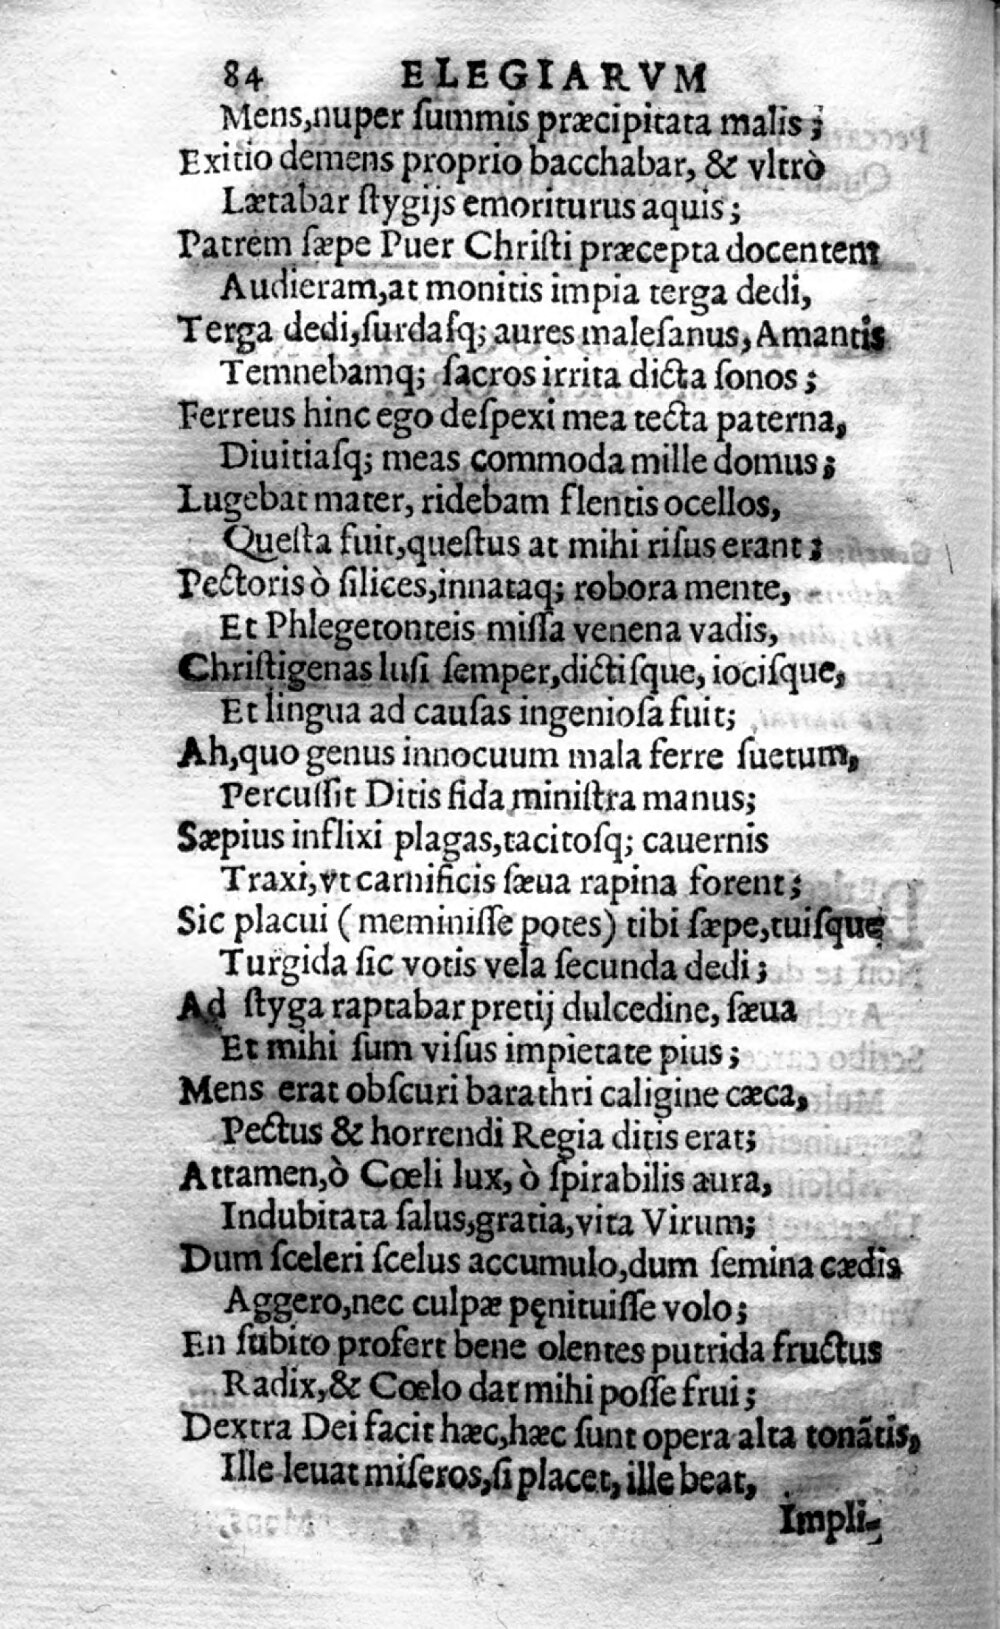 84 ELEGIARVM
Mens,nuper ſummis præcipitata malis ;
Exitio demens proprio bacchabar, & vltrò
Lætabar ſtygijs emoriturus aquis ;
Patrem ſæpe Puer Chriſti præcepta docentem
Audieram,at monitis impia terga dedi,
Terga dedi,ſurdaſq; aures maleſanus, Amantis
Temnebamq; ſacros irrita dicta ſonos ;
Ferreus hinc ego deſpexi mea tecta paterna,
Diuitiaſq; meas commoda mille domus ;
Lugebat mater, ridebam flentis ocellos,
Queſta fuit,queſtus at mihi riſus erant ;
Pectoris ò ſilices,innataq; robora mente,
Et Phlegetonteis miſſa venena vadis,
Chriſtigenas luſi ſemper,dictiſque, iociſque,
Et lingua ad cauſas ingenioſa fuit;
Ah,quo genus innocuum mala ferre ſuetum,
Percuſſit Ditis fida miniſtra manus;
Sæpius inflixi plagas,tacitoſq; cauernis
Traxi,vt carnificis ſæua rapina forent ;
Sic placui (meminiſſe potes) tibi ſæpe,tuiſque
Turgida ſic votis vela ſecunda dedi ;
Ad ſtyga raptabar pretij dulcedine, ſæua
Et mihi ſum viſus impietate pius ;
Mens erat obſcuri barathri caligine cæca,
Pectus & horrendi Regia ditis erat;
Attamen,ò Cœli lux, ò ſpirabilis aura,
Indubitata ſalus,gratia,vita Virum;
Dum ſceleri ſcelus accumulo,dum ſemina cædis
Aggero,nec culpæ pęnituiſſe volo;
En ſubito profert bene olentes putrida fructus
Radix,& Cœlo dat mihi poſſe frui ;
Dextra Dei facit hæc,hæc ſunt opera alta tonãtis,
Ille leuat miſeros,ſi placet, ille beat,
Impli-